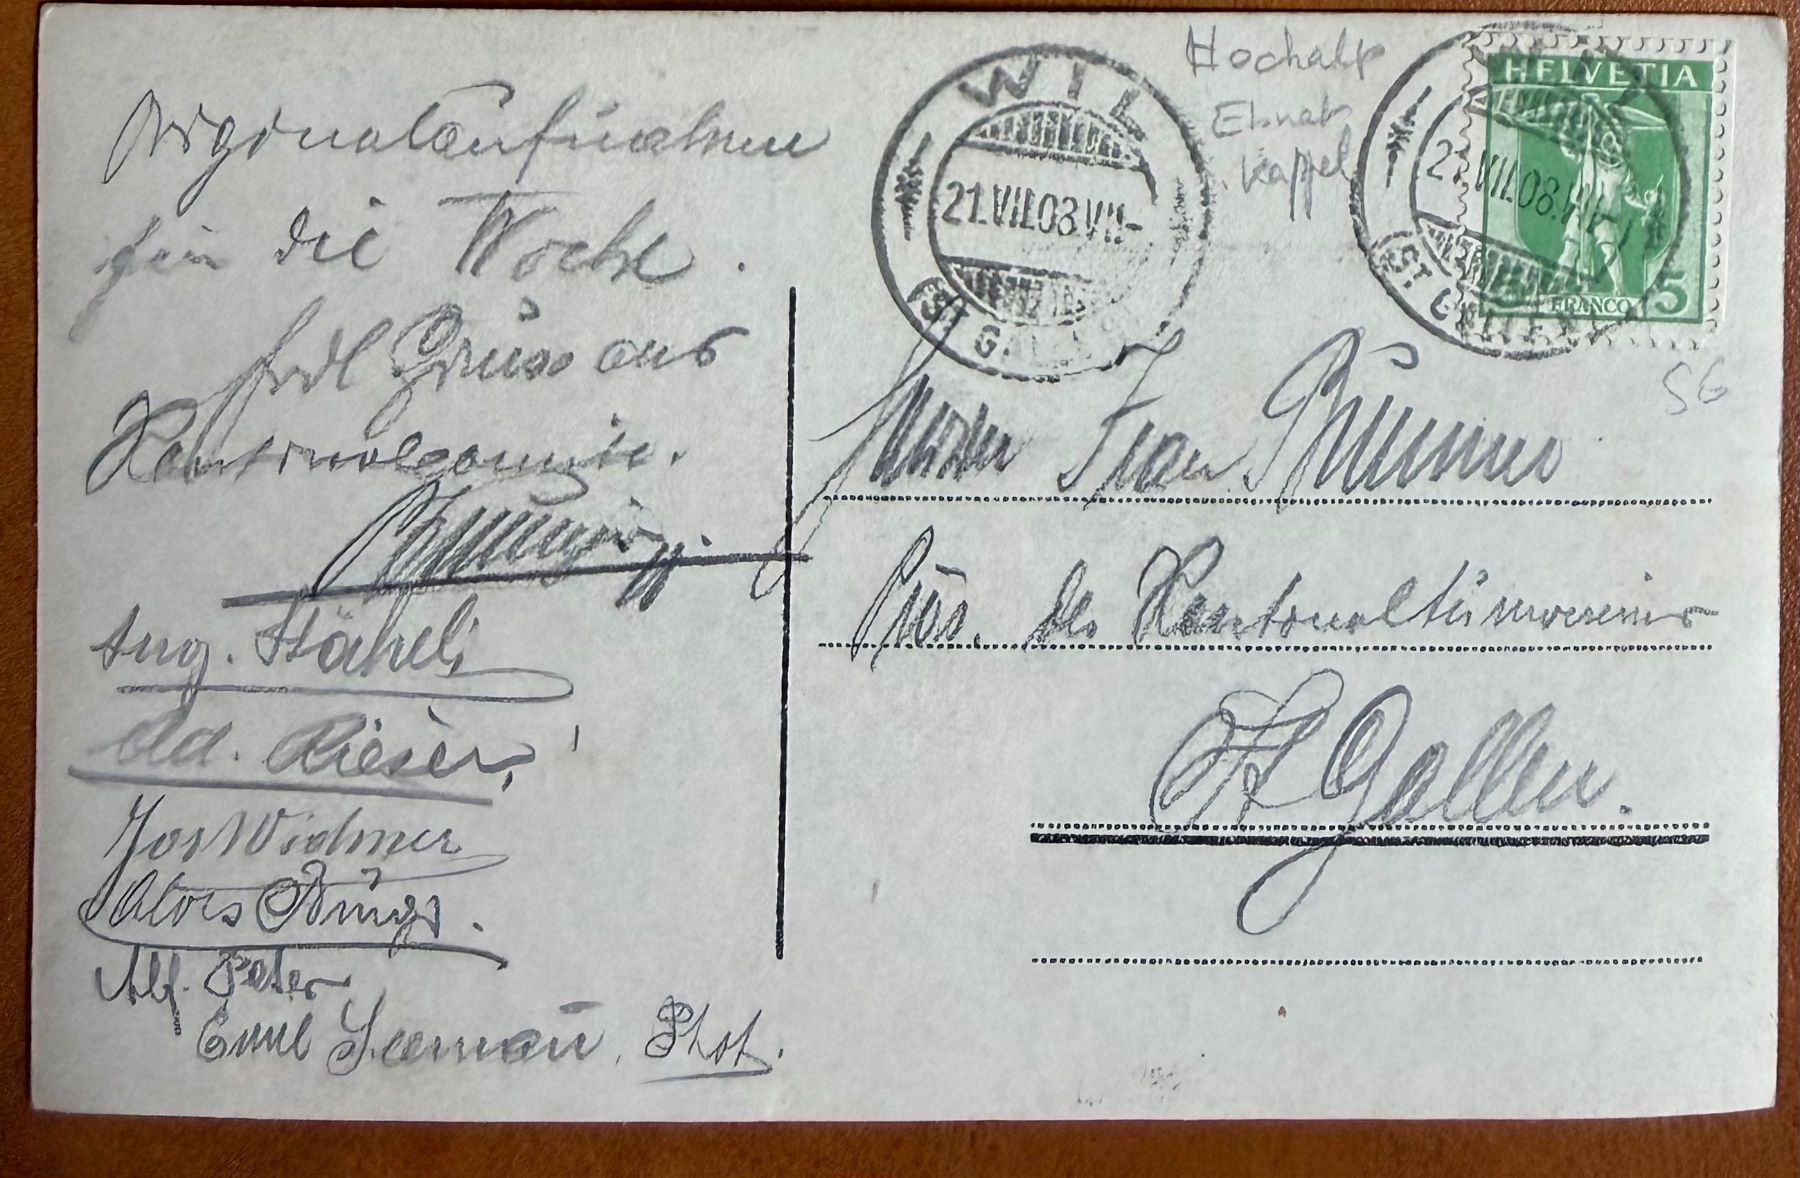 Originalaufnahme
für die Woche.
frdl Gruss aus
Aug. Stäheli
Ad. Rieser
Jos Widmer
Alois
Alf. Peter
Emil Seeman, Phot.
WIL
21.VII.08.VII-
(ST. GALLEN)
Hochalp
Ebnat
Kappel
HELVETIA
FRANCO 5
WIL
21.VII.08.VII-
(ST. GALLEN)
SG
Frau
Präs. des Kantonalturnvereins
St Gallen.